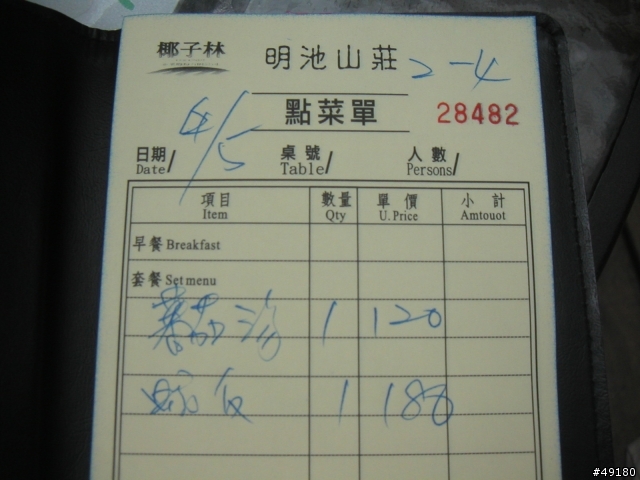 椰子林
明池山莊 2-4
點菜單 28482
日期 Date/ 4/5 桌號 Table/ 人數 Persons/
項目 Item 數量 Qty 單價 U. Price 小計 Amtouot
早餐 Breakfast
套餐 Set menu
蕃茄湯 1 120
飯 1 180
#49180